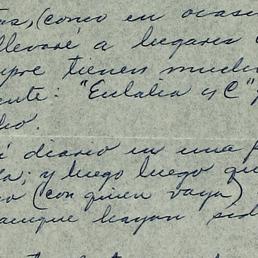 tas, (como en ocasi
llevaré a lugares
mpre tienen mucho
ente: "Eulalia y C"
ho.
i diario en una p
la; y luego luego qu
o (con quien vaya)
aunque hayan sid